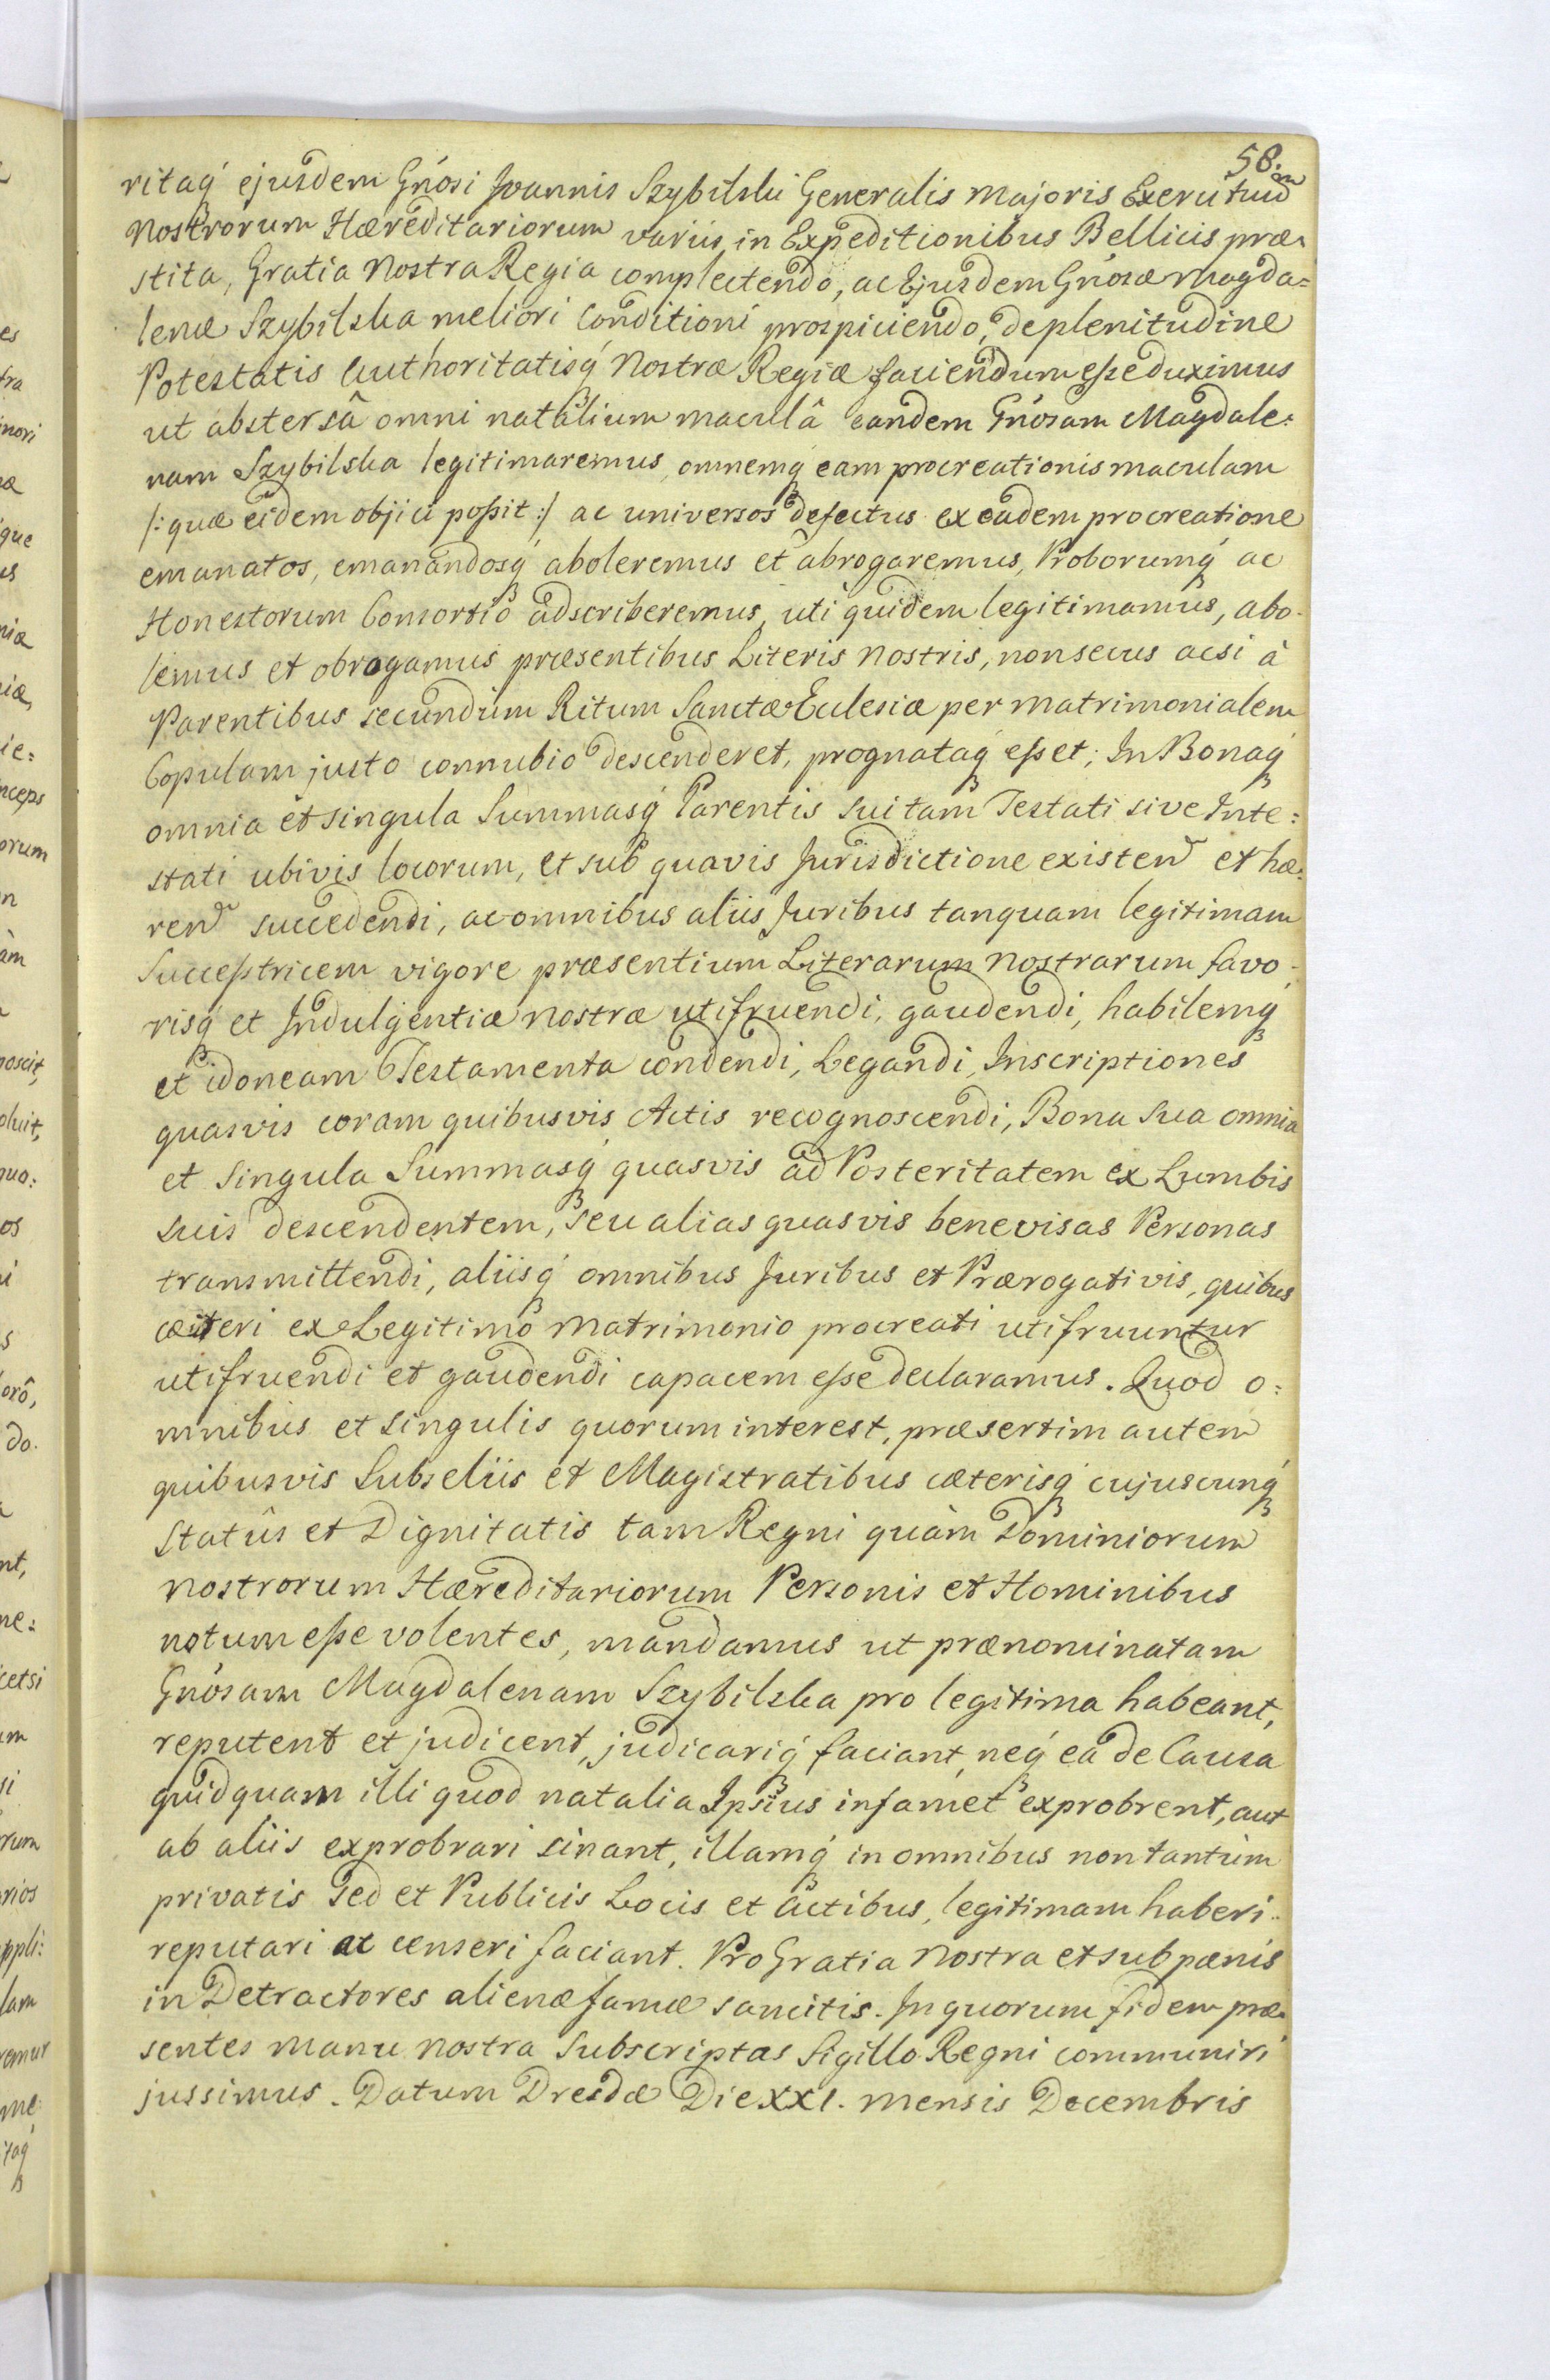 58.
ritaq́ ejusdem Gnósi Joannis Szybilski Generalis Majoris Exerutuu͠m
Nostrorum Hæreditariorum variis in Expeditionibus Bellicis præ-
stita, Gratia Nostra Regia complectendo, ac Ejusdem Gnósæ Magda=
lenæ Szybilska meliori Conditioni prospiciendo, de plenitudine
Potestatis Authoritatisq́ Nostræ Regiæ faciendum eſse duximus
ut abstersâ omni natalium maculâ eandem Gnósam Magdale:
nam Szybilska legitimaremus, omnemq́ eam procreationis maculam
/: quæ eidem objici poſsit :/ ac universos defectus ex eadem procreatione
emanatos, emanandosq́ aboleremus et abrogaremus, Proborumq́ ac
Honestorum Consortio adscriberemus, uti quidem legitimamus, abo-
lemus et obrogamus præsentibus Literis Nostris, non secus acsi à
Parentibus secundum Ritum Sanctæ Eclesiæ per matrimonialem
Copulam justo connubio descenderet, prognataq́ eſset; In Bonaq́
omnia et singula Summasq́ Parentis sui tam Testati sive Inte:
stati ubivis locorum, et sub quavis Jurisdictione existen͠ et hæ-
ren͠ succedendi, ac omnibus aliis Juribus tanquam legitimam
Succeſstricem vigore præsentium Literarum Nostrarum favo-
risq́ et Indulgentiæ Nostræ utifruendi, gaudendi, habilemq́
et idoneam Testamenta condendi, Legandi, Inscriptiones
quasvis coram quibusvis Actis recognoscendi, Bona sua omnia
et singula Summasq́ quasvis ad Posteritatem ex Lumbis
suis descendentem, seu alias quasvis benevisas Personas
transmittendi, aliisq́ omnibus Juribus et Prærogativis, quibus
cæteri ex Legitimo Matrimonio procreati utifruuntur
utifruendi et gaudendi capacem eſse declaramus. Quod o:
mnibus et singulis quorum interest, præsertim autem
quibusvis Subseliis et Magistratibus cæterisq́ cujuscunq́
Statûs et Dignitatis tam Regni quàm Dominiorum
Nostrorum Hæreditariorum Personis et Hominibus
notum eſse volentes, mandamus ut prænominatam
Gnósam Magdalenam Szybilska pro legitima habeant,
reputent et judicent, judicariq́ faciant, neq́ eâ de Causa
quidquam illi quod natalia Ipsius infamet exprobrent, aut
ab aliis exprobrari sinant, illamq́ in omnibus non tantùm
privatis sed et Publicis Locis et Actibus, legitimam haberi
reputari ac censeri faciant. Pro Gratia Nostra et sub pœnis
in Detractores alienæ famæ sancitis. In quorum fidem præ-
sentes Manu Nostra Subscriptas Sigillo Regni communiri
jussimus. Datum Dresdæ Die XXI. Mensis Decembris